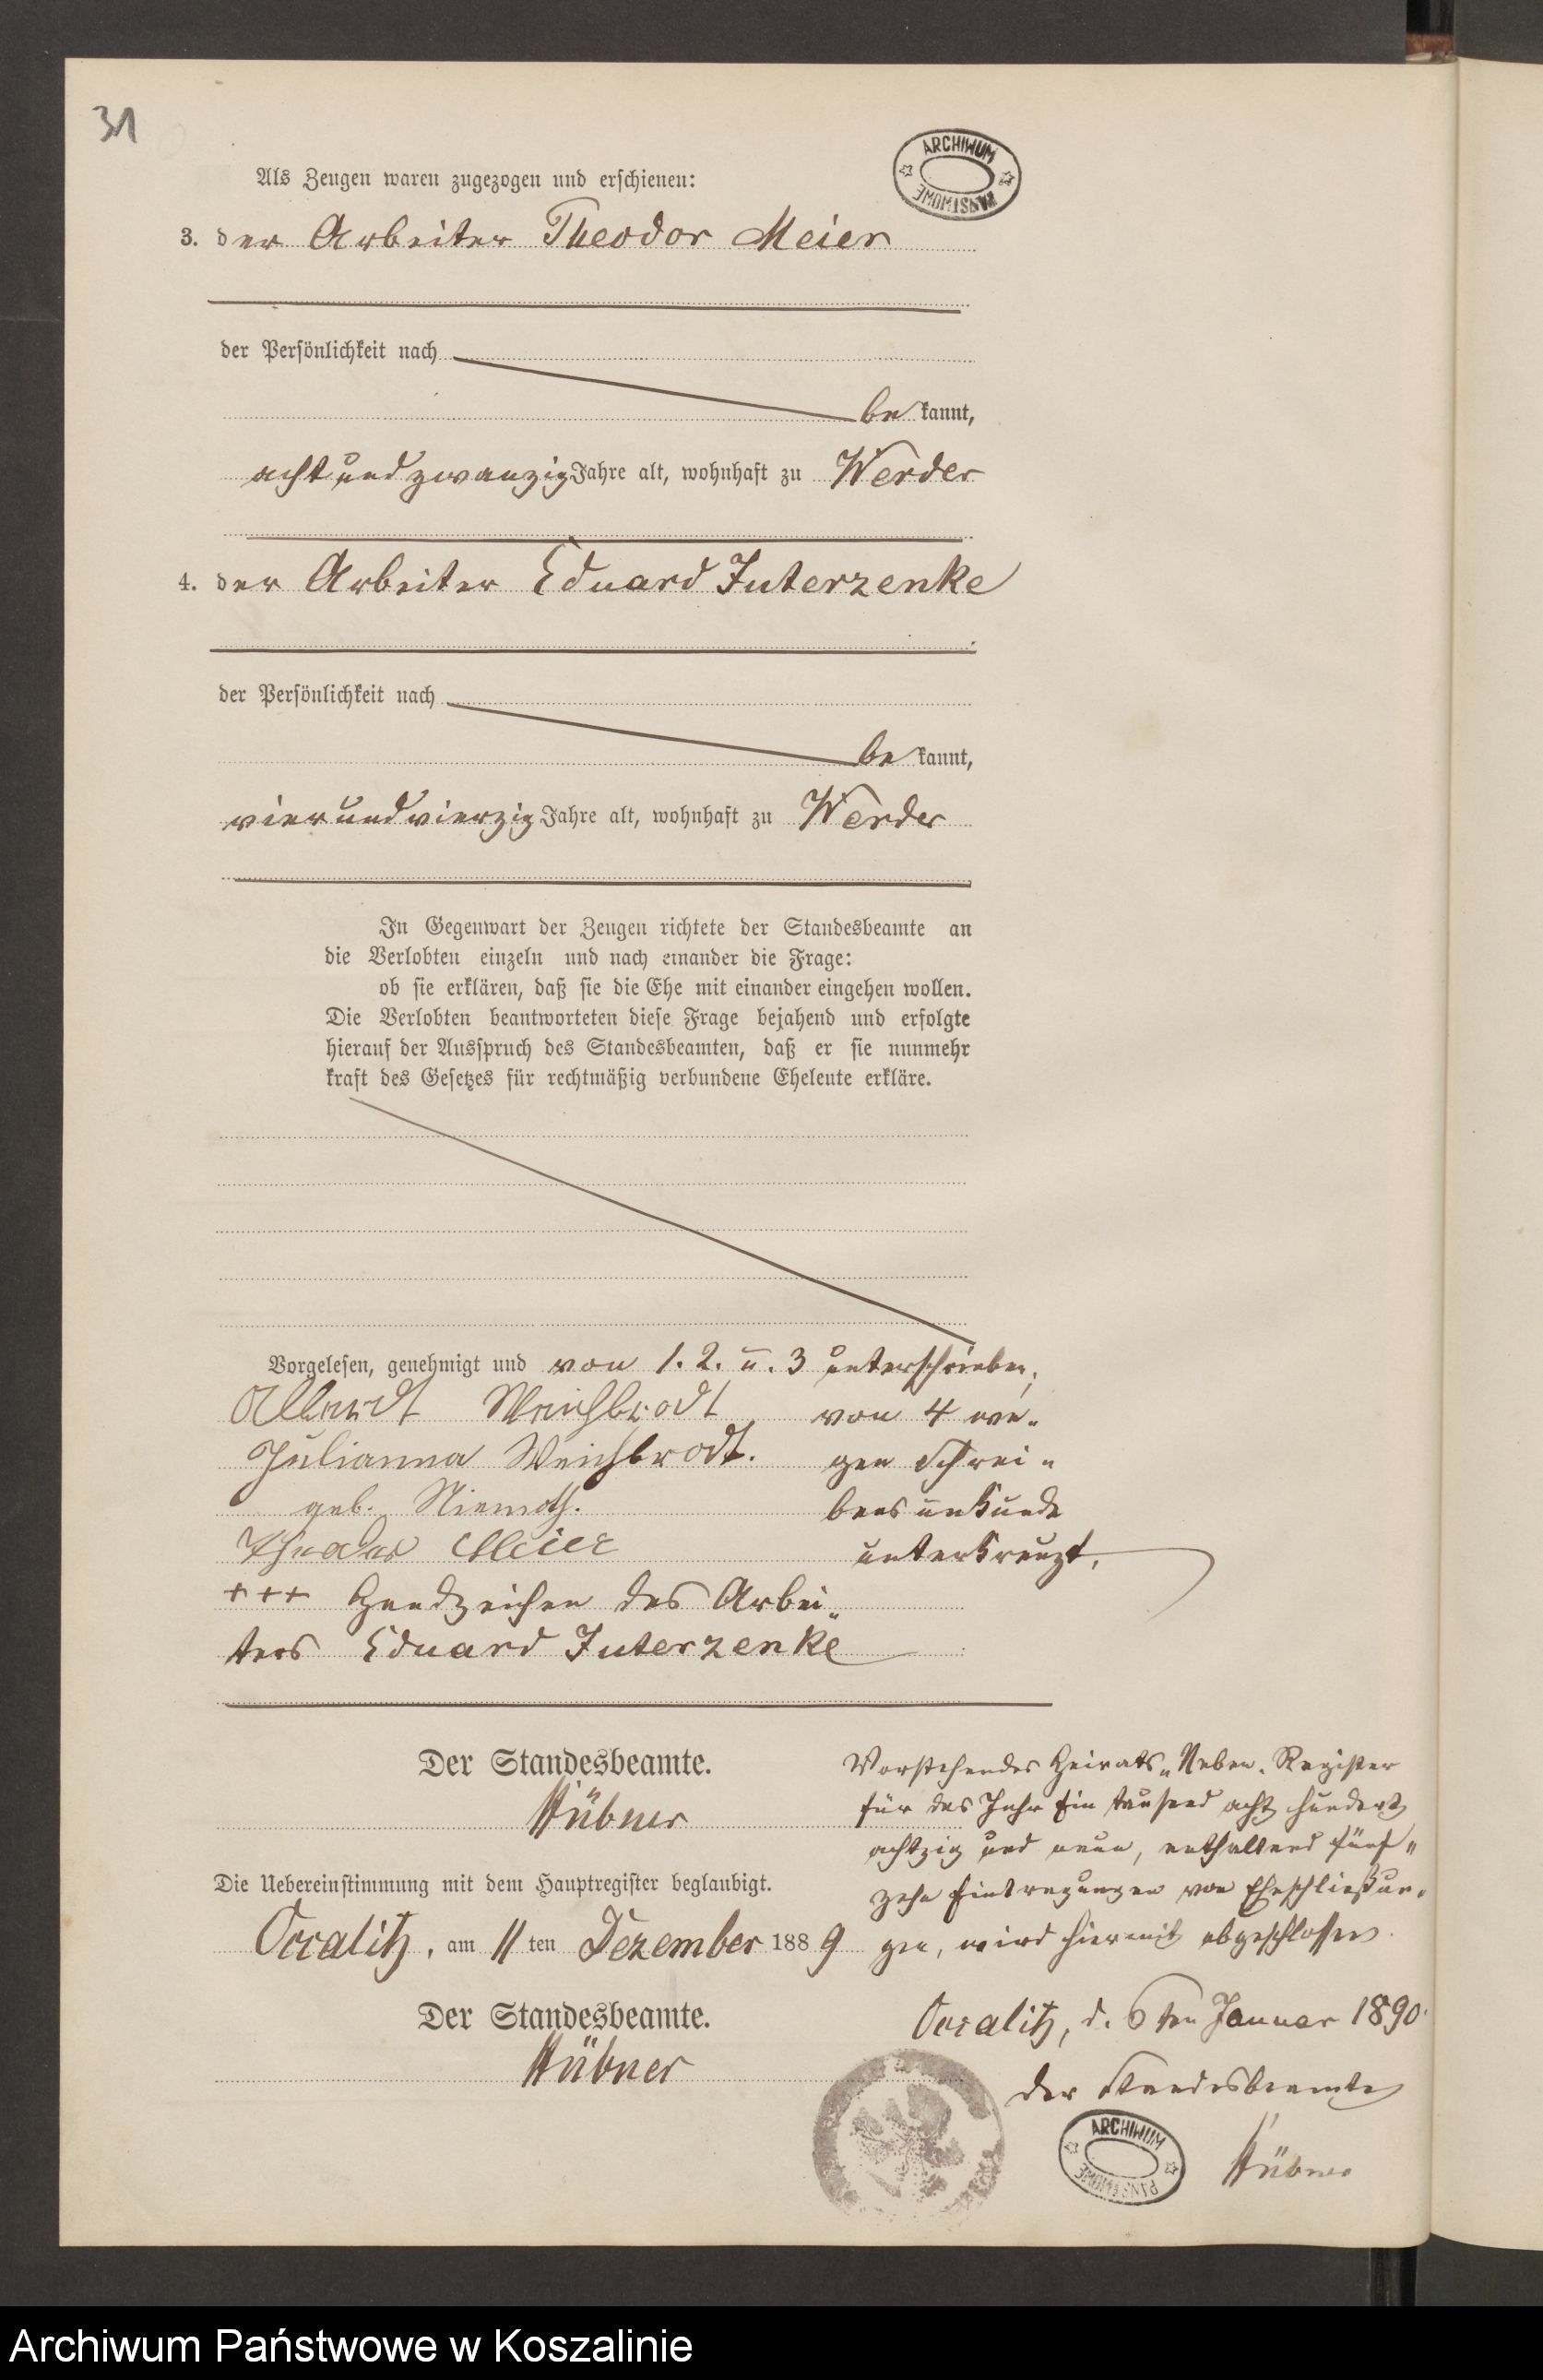 31
ARCHIWUM
PAŃSTWOWE
Als Zeugen waren zugezogen und erschienen:
3. der Arbeiter Theodor Meier
der Persönlichkeit nach
be kannt,
acht und zwanzig Jahre alt, wohnhaft zu Werder
4. der Arbeiter Eduard Juterzenke
der Persönlichkeit nach
be kannt,
vier und vierzig Jahre alt, wohnhaft zu Werder
In Gegenwart der Zeugen richtete der Standesbeamte an
die Verlobten einzeln und nach einander die Frage:
ob sie erklären, daß sie die Ehe mit einander eingehen wollen.
Die Verlobten beantworteten diese Frage bejahend und erfolgte
hierauf der Ausspruch des Standesbeamten, daß er sie nunmehr
kraft des Gesetzes für rechtmäßig verbundene Eheleute erkläre.
Vorgelesen, genehmigt und von 1. 2. u. 3 unterschrieben,
Weichbrodt von 4 we-
Julianna Weichbrodt. gen Schrei-
geb. Niemoth. bensunkunde
Theodor Meier unterkreuzt.
+++ Handzeichen des Arbei-
ters Eduard Juterzenke
Der Standesbeamte.
Hübner
Die Uebereinstimmung mit dem Hauptregister beglaubigt.
Occalitz, am 11 ten Dezember 1889
Der Standesbeamte.
Hübner
Vorstehendes Heirats-Neben-Register
für das Jahr Ein tausend acht hundert
achtzig und neun, enthaltend fünf-
zehn Eintragungen von Eheschließun-
gen, wird hiermit abgeschlossen.
Occalitz, d. 6ten Januar 1890
Der Standesbeamte
Hübner
ARCHIWUM
PAŃSTWOWE
Archiwum Państwowe w Koszalinie